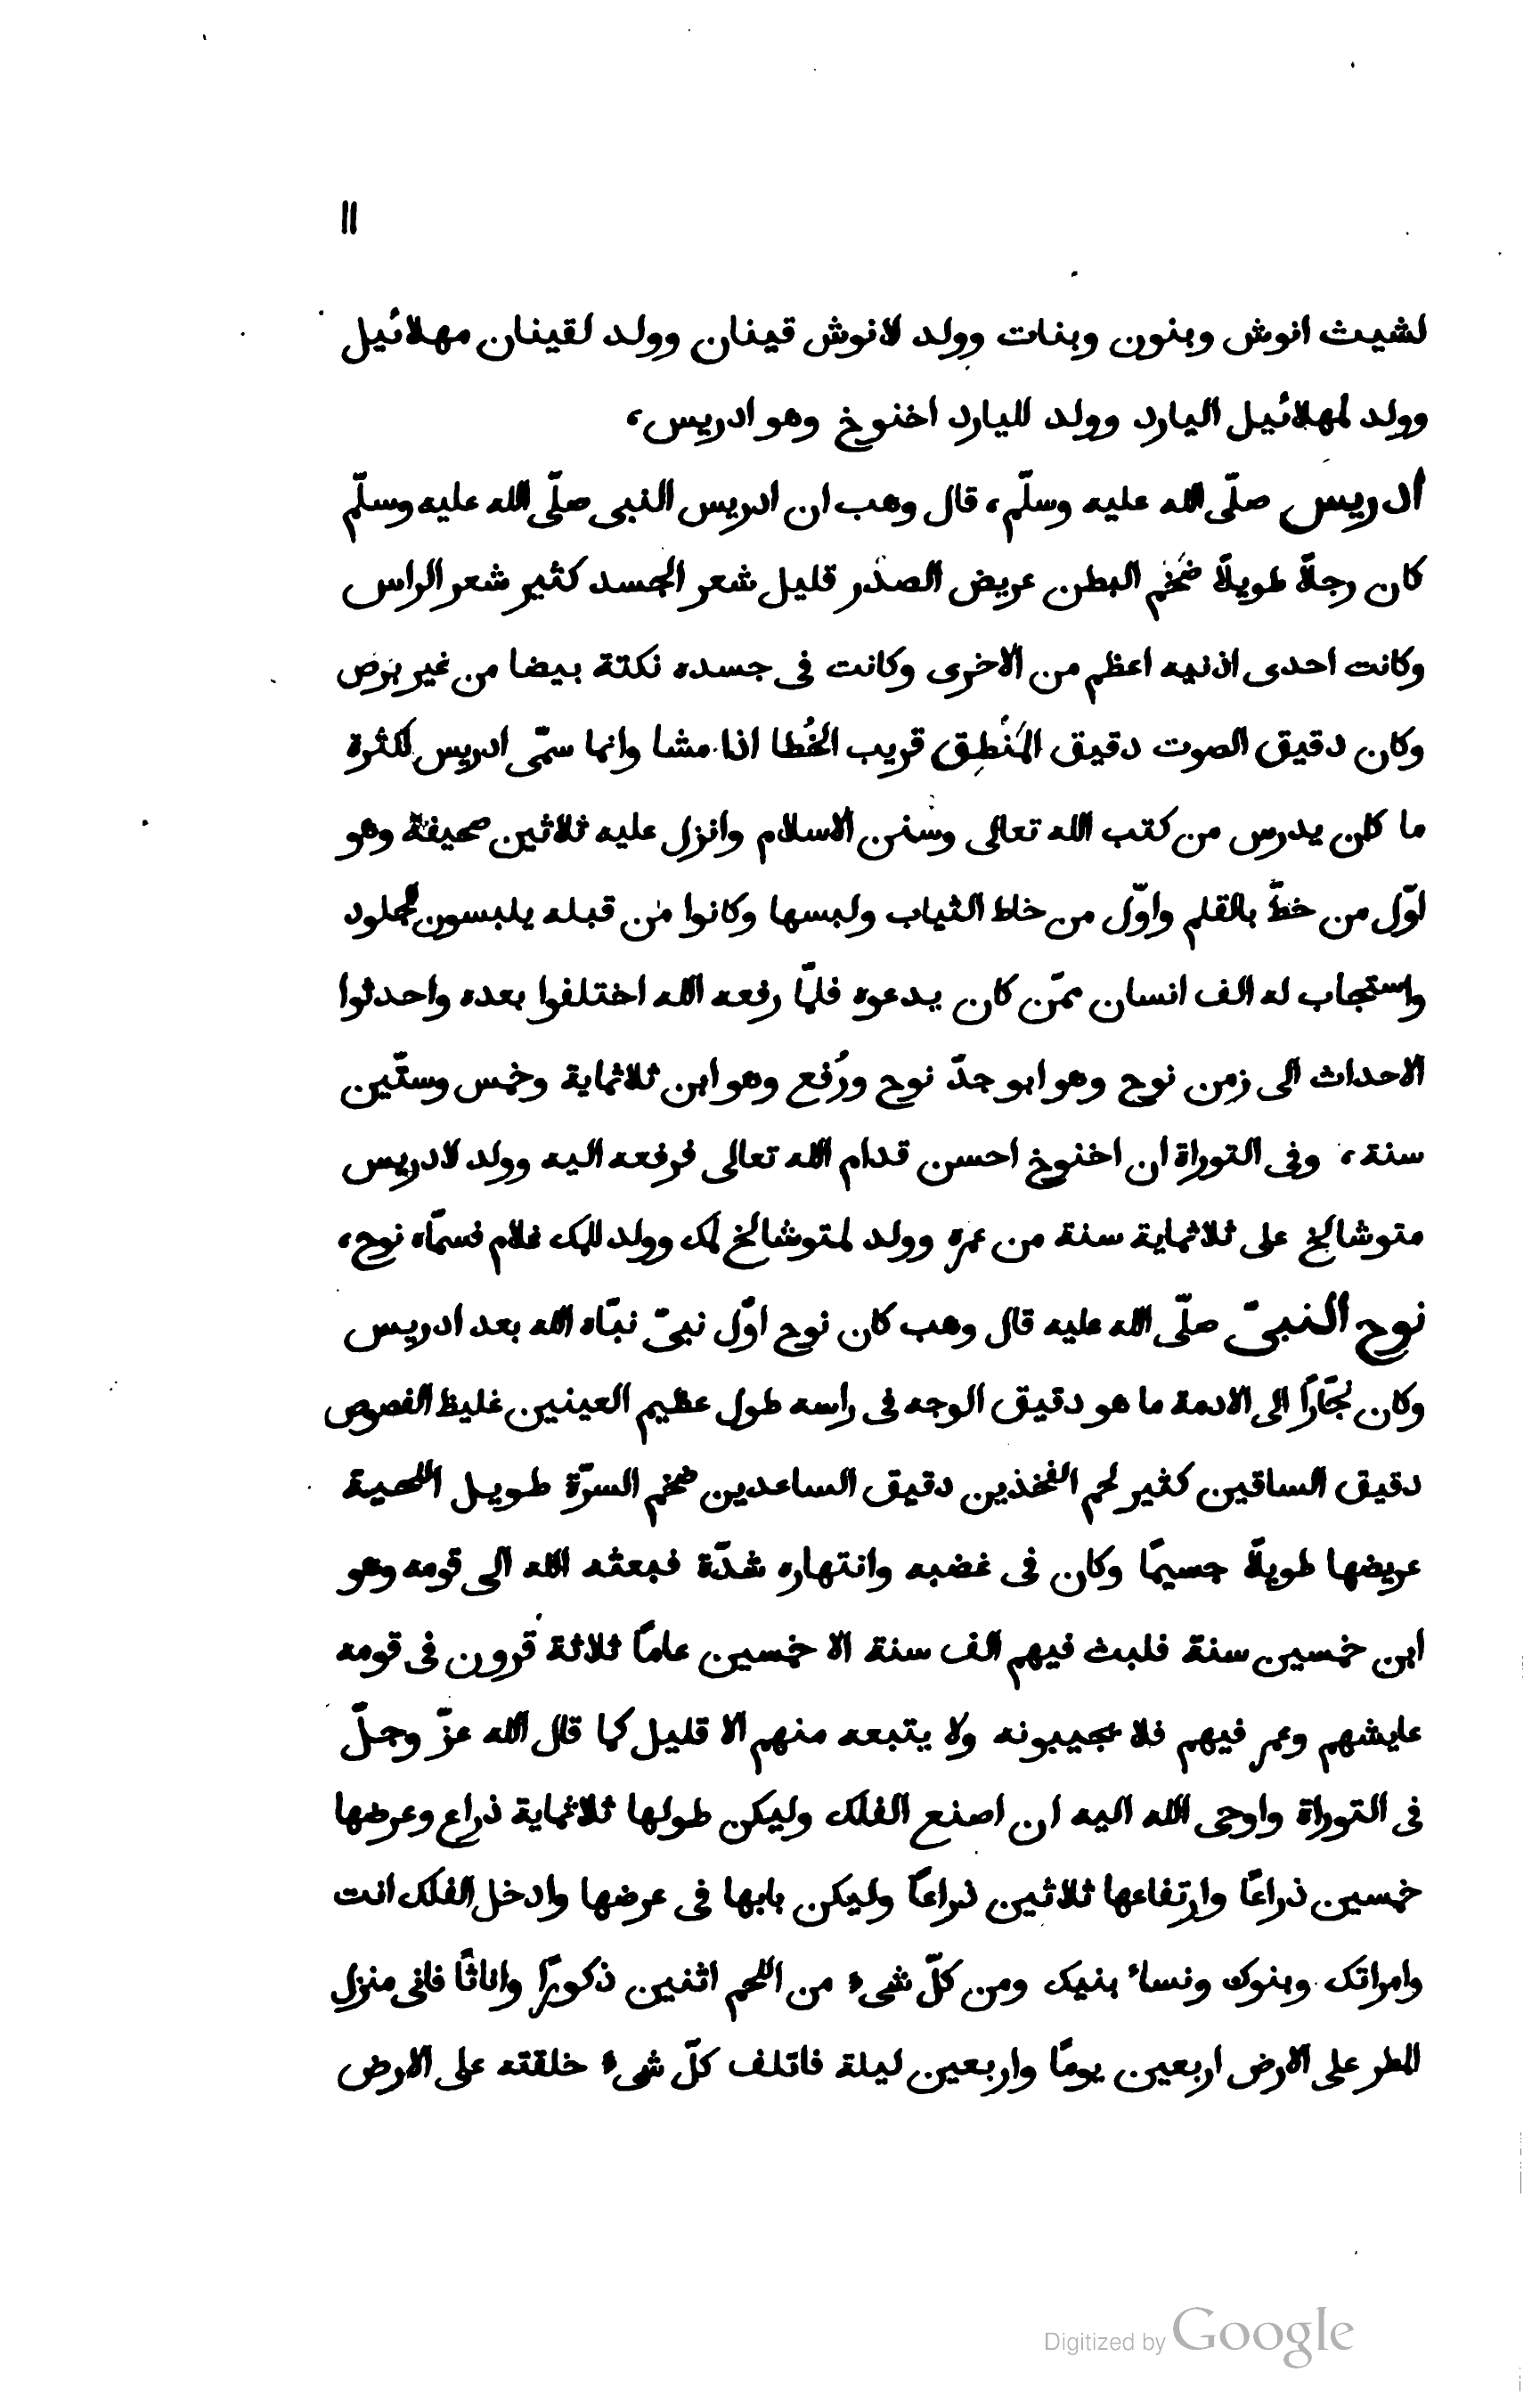 ١١
لشيث انوش وبنون وبنات وولد لانوش قينان وولد لقينان مهلائيل
وولد لمهلائيل اليارد وولد لليارد اخنوخ وهو ادريس،
ادريس صلّى الله عليه وسلّم، قال وهب ان ادريس النبى صلّى الله عليه وسلّم
كان رجلًا طويلًا ضَخْم البطن عريض الصدْر قليل شعر الجسد كثير شعر الراس
وكانت احدى اذنيه اعظم من الاخرى وكانت فى جسده نكتة بيضا من غير بَرَص
وكان دقيق الصوت دقيق المَنْطِق قريب الخُطا اذا مشا وانما سمّى ادريس لكثرة
ما كان يدرس من كتب الله تعالى وسنن الاسلام وانزل عليه ثلاثين صحيفة وهو
اوّل من خطّ بالقلم واوّل من خاط الثياب ولبسها وكانوا من قبله يلبسون الجلود
واستجاب له الف انسان ممّن كان يدعوه فلمّا رفعه الله اختلفوا بعده واحدثوا
الاحداث الى زمن نوح وهو ابو جدّ نوح ورُفع وهو ابن ثلاثماية وخمس وستّين
سنة، وفى التوراة ان اخنوخ احسن قدام الله تعالى فرفعه اليه وولد لادريس
متوشالخ على ثلاثماية سنة من عمره وولد لمتوشالخ لمك وولد للمك غلام فسمّاه نوح،
نوح النبىّ صلّى الله عليه قال وهب كان نوح اوّل نبىّ نبّاه الله بعد ادريس
وكان نجّارًا الى الادمة ما هو دقيق الوجه فى راسه طول عظيم العينين غليظ الفصوص
دقيق الساقين كثير لحم الفخذين دقيق الساعدين ضخم السرّة طويل اللحية
عريضها طويلًا جسيمًا وكان فى غضبه وانتهاره شدّة فبعثه الله الى قومه وهو
ابن خمسين سنة فلبث فيهم الف سنة الا خمسين عامًا ثلاثة قرون فى قومه
عايشهم وعمر فيهم فلا يجيبونه ولا يتبعه منهم الا قليل كما قال الله عزّ وجلّ
فى التوراة واوحى الله اليه ان اصنع الفلك وليكن طولها ثلاثماية ذراع وعرضها
خمسين ذراعًا وارتفاعها ثلاثين ذراعًا وليكن بابها فى عرضها وادخل الفلك انت
وامراتك وبنوك ونساء بنيك ومن كلّ شىء من اللحم اثنين ذكورًا واناثًا فانى منزل
المطر على الارض اربعين يومًا واربعين ليلة فاتلف كلّ شىء خلقته على الارض
Digitized by Google